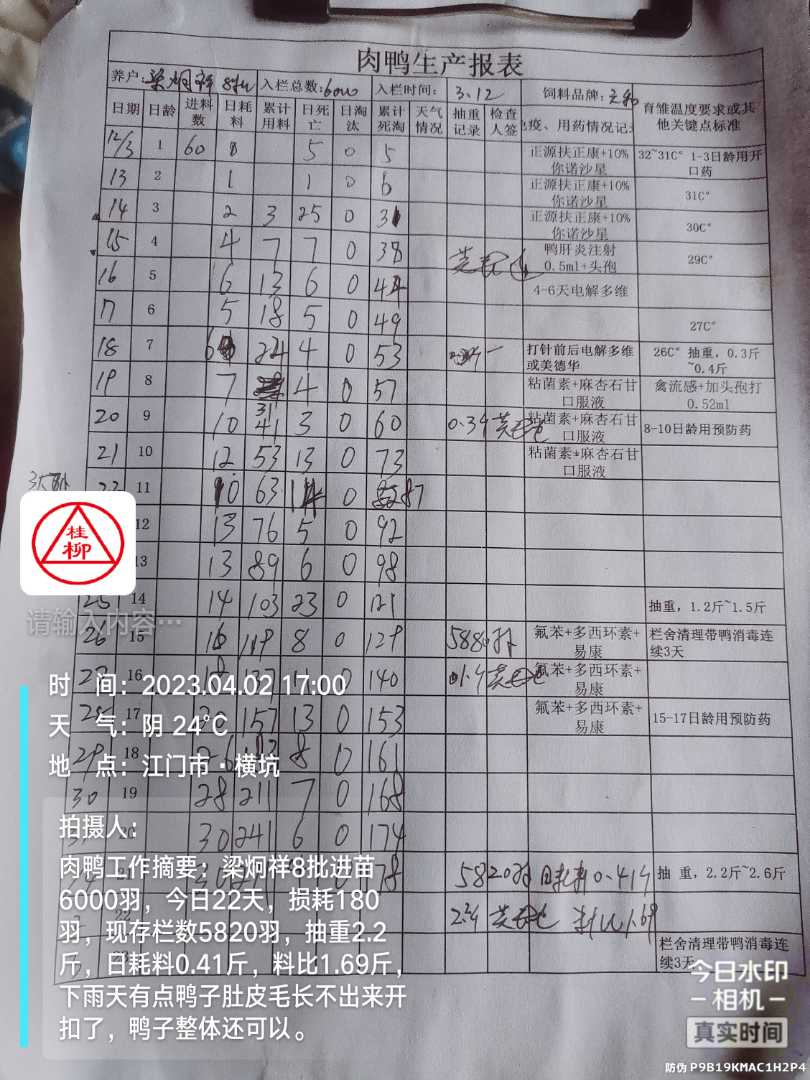 肉鸭生产报表
养户: 梁炯祥 8批 入栏总数: 6000 入栏时间: 3.12 饲料品牌:
日期 日龄 进料数 日耗料 累计用料 日死亡 日淘汰 累计死淘 天气情况 抽重记录 检查人签 疫、用药情况记 育雏温度要求或其他关键点标准
12/3 1 60 5 0 5 正源扶正康+10%你诺沙星 32~31C° 1-3日龄用开口药
13 2 1 1 0 6 正源扶正康+10%你诺沙星 31C°
14 3 2 3 25 0 31 正源扶正康+10%你诺沙星 30C°
15 4 4 7 7 0 38 鸭肝炎注射0.5ml+头孢 29C°
16 5 6 13 6 0 44 4-6天电解多维
17 6 5 18 5 0 49 27C°
18 7 6 24 4 0 53 打针前后电解多维或美德华 26C° 抽重，0.3斤~0.4斤
19 8 7 31 4 0 57 粘菌素+麻杏石甘口服液 禽流感+加头孢打0.52ml
20 9 10 41 3 0 60 粘菌素+麻杏石甘口服液 8-10日龄用预防药
21 10 12 53 13 0 73 粘菌素+麻杏石甘口服液
11 10 63 14 0 87
12 13 76 5 0 92
13 13 89 6 0 98
25 14 14 103 23 0 121 抽重，1.2斤~1.5斤
26 15 16 119 8 0 129 氟苯+多西环素+易康 栏舍清理带鸭消毒连续3天
27 16 137 0 140 氟苯+多西环素+易康
28 17 20 157 13 0 153 氟苯+多西环素+易康 15-17日龄用预防药
29 18 26 8 0 161
30 19 28 211 7 0 168
30 241 6 0 174
78 5820羽 日耗料0.41斤 抽 重，2.2斤~2.6斤
2.2斤 料比1.69
栏舍清理带鸭消毒连续3天
桂柳
请输入内容…
时 间：2023.04.02 17:00
天 气：阴 24℃
地 点：江门市·横坑
拍摄人：
肉鸭工作摘要：梁炯祥8批进苗
6000羽，今日22天，损耗180
羽，现存栏数5820羽，抽重2.2
斤，日耗料0.41斤，料比1.69斤，
下雨天有点鸭子肚皮毛长不出来开
扣了，鸭子整体还可以。
今日水印
相机
真实时间
防伪 P9B19KMAC1H2P4